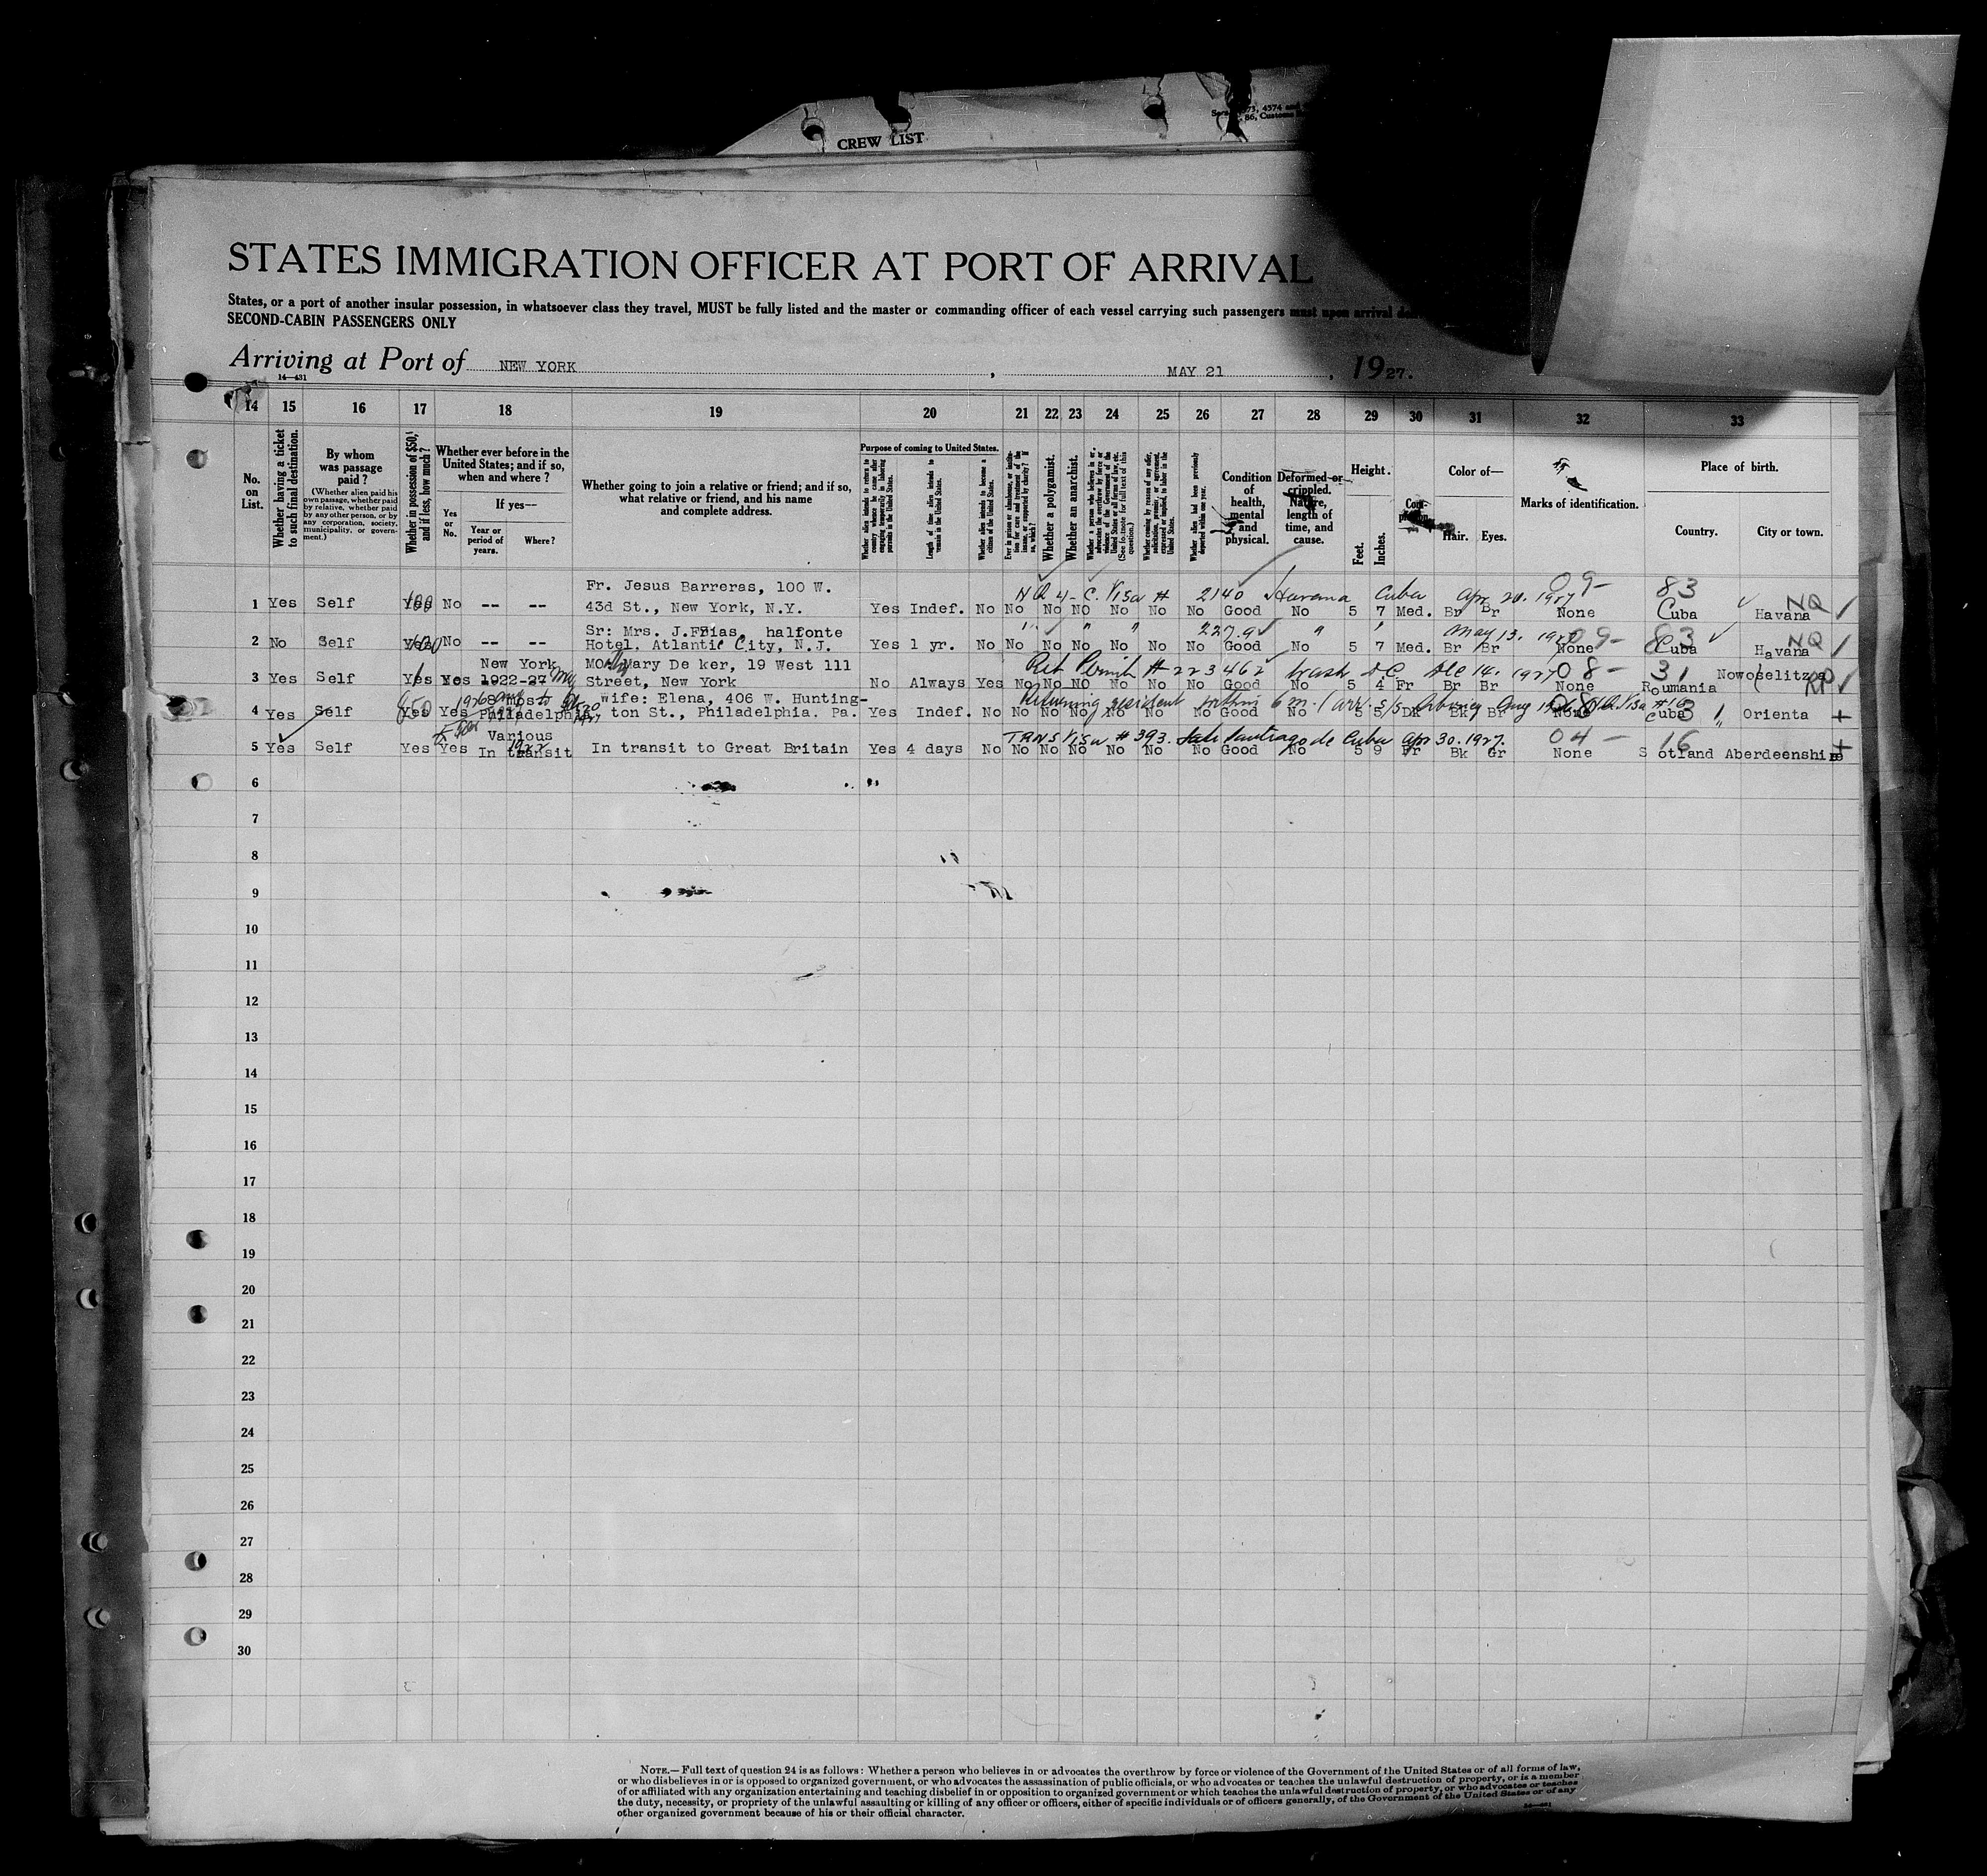 CREW LIST
STATES IMMIGRATION OFFICER AT PORT OF ARRIVAL
States, or a port of another insular possession, in whatsoever class they travel, MUST be fully listed and the master or commanding officer of each vessel carrying such passengers must upon arrival
SECOND-CABIN PASSENGERS ONLY
Arriving at Port of NEW YORK, MAY 21, 1927.
14—431
14 15 16 17 18 19 20 21 22 23 24 25 26 27 28 29 30 31 32 33
No. on List.
Whether having a ticket to such final destination.
By whom was passage paid?
(Whether alien paid his own passage, whether paid by relative, whether paid by any other person, or by any corporation, society, municipality, or government.)
Whether in possession of $50, and if less, how much?
Whether ever before in the United States; and if so, when and where?
If yes—
Yes or No.
Year or period of years.
Where?
Whether going to join a relative or friend; and if so, what relative or friend, and his name and complete address.
Purpose of coming to United States.
Whether alien intends to return to country whence he came after engaging temporarily in laboring pursuits in the United States.
Length of time alien intends to remain in the United States.
Whether alien intends to become a citizen of the United States.
Ever in prison or almshouse, or institution for care and treatment of the insane, or supported by charity? If so, which?
Whether a polygamist.
Whether an anarchist.
Whether a person who believes in or advocates the overthrow by force or violence of the Government of the United States or all forms of law, etc. (See footnote for full text of this question.)
Whether coming by reason of any offer, solicitation, promise, or agreement, expressed or implied, to labor in the United States.
Whether alien had been previously deported within one year.
Condition of health, mental and physical.
Deformed or crippled. Nature, length of time, and cause.
Height.
Feet. Inches.
Complexion.
Color of—
Hair. Eyes.
Marks of identification.
Place of birth.
Country. City or town.
NQ 4-C. Visa # 2140 Havana Cuba Apr. 20. 1927 09- 83 NQ
Fr. Jesus Barreras, 100 W.
1 Yes Self Yes 100 No -- -- 43d St., New York, N.Y. Yes Indef. No No No No No No No Good No 5 7 Med. Br Br None Cuba Havana
" " " 2279 " " May 13. 1927 09- 83 NQ
Sr: Mrs. J. Frias, halfonte
2 No Self Yes No -- -- Hotel. Atlantic City, N.J. Yes 1 yr. No No No No No No No Good No 5 7 Med. Br Br None Cuba Havana
Ret Permit # 223462 Wash D.C. Dec 14. 1927 08- 31 RP
New York Mary De ker, 19 West 111
3 Yes Self Yes Yes 1922-27 Street, New York No Always Yes No No No No No No Good No 5 4 Fr Br Br None Roumania Nowoselitza
Returning resident within 6 m. (arr. S/S
8 mos wife: Elena, 406 W. Hunting-
4 Yes Self Yes 850 Yes Philadelphia ton St., Philadelphia. Pa. Yes Indef. No No No No No No No Good No 5 5 Dk Bk Br None Cuba Orienta
TRNS Visa # 393. Santiago de Cuba Apr 30. 1927. 04- 16
Various 1922
5 Yes Self Yes Yes In transit In transit to Great Britain Yes 4 days No No No No No No No Good No 5 9 Fr Bk Gr None S otland Aberdeenshire
6
7
8
9
10
11
12
13
14
15
16
17
18
19
20
21
22
23
24
25
26
27
28
29
30
NOTE.—Full text of question 24 is as follows: Whether a person who believes in or advocates the overthrow by force or violence of the Government of the United States or of all forms of law,
or who disbelieves in or is opposed to organized government, or who advocates the assassination of public officials, or who advocates or teaches the unlawful destruction of property, or is a member
of or affiliated with any organization entertaining and teaching disbelief in or opposition to organized government or which teaches the unlawful destruction of property, or who advocates or teaches
the duty, necessity, or propriety of the unlawful assaulting or killing of any officer or officers, either of specific individuals or of officers generally, of the Government of the United States or of any
other organized government because of his or their official character.